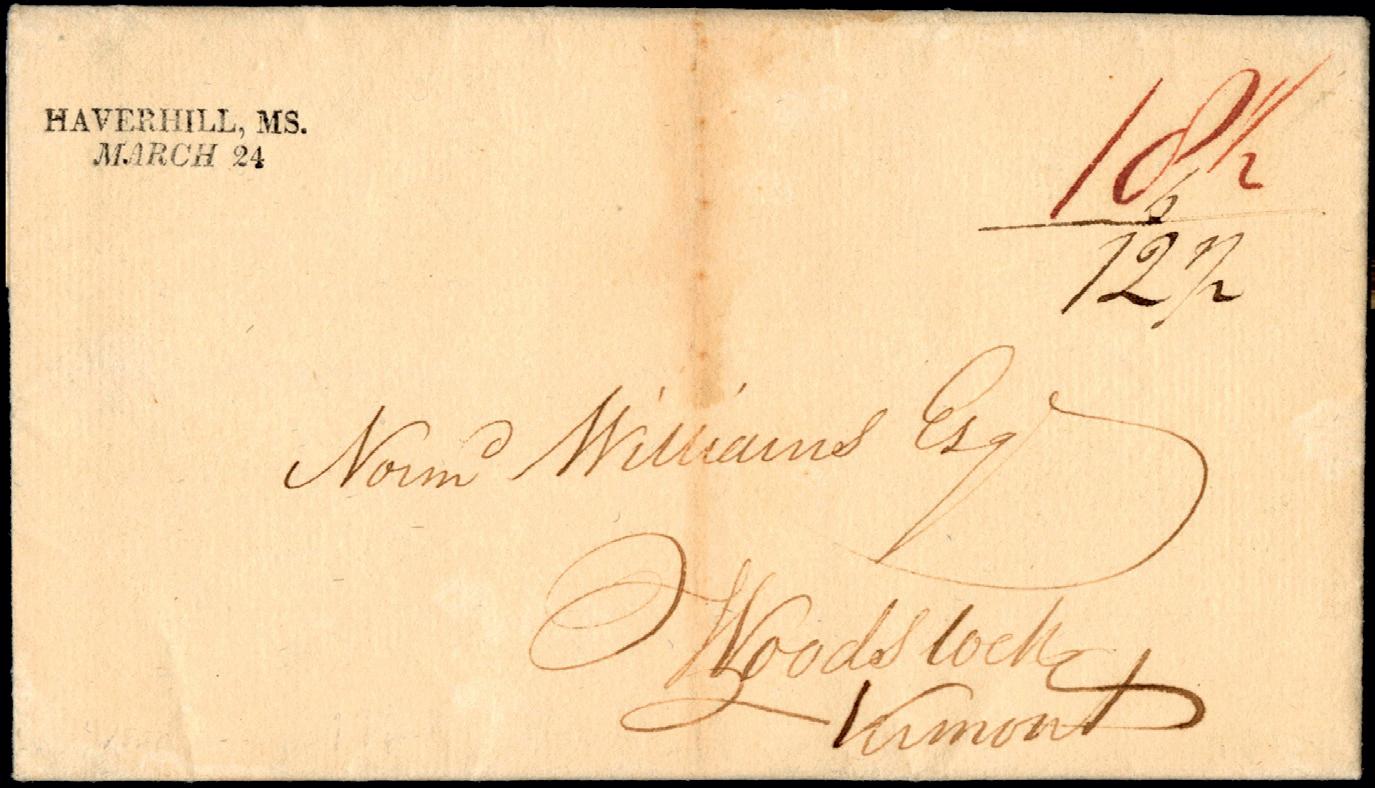 HAVERHILL, MS.
MARCH 24
18 1/2
6
12 1/2
Normd Williams Esqr
Woodstock
Vermont